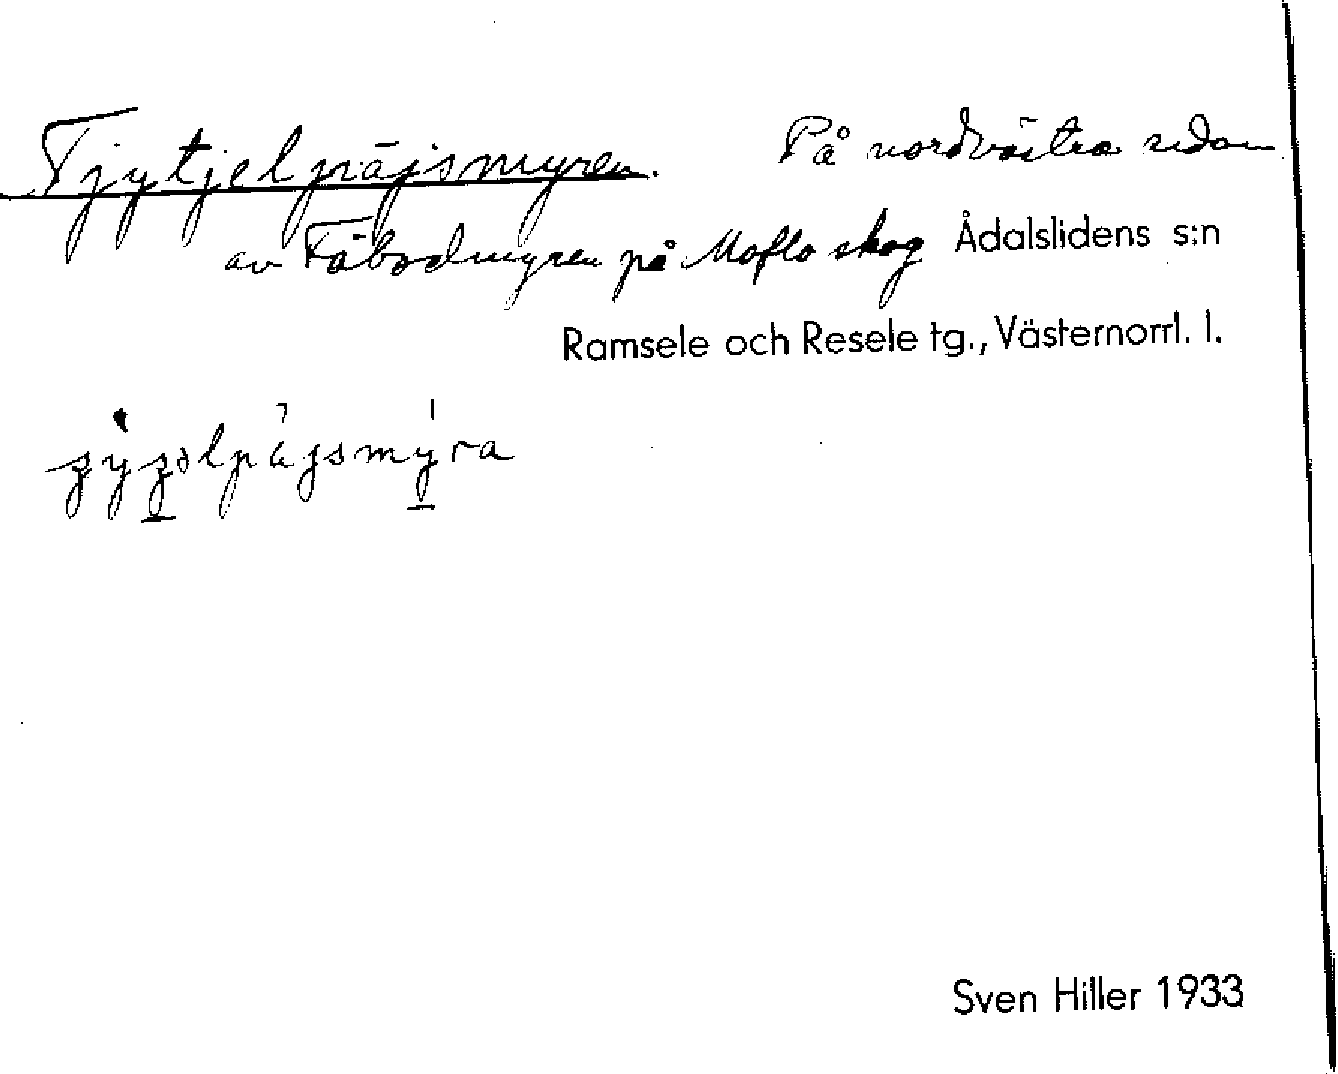 Tjytjelpäjsmyren. På nordvästra sidan
av Fäbodmyren på Moflo skog Ådalslidens s:n
Ramsele och Resele tg., Västernorrl. l.
Sven Hiller 1933